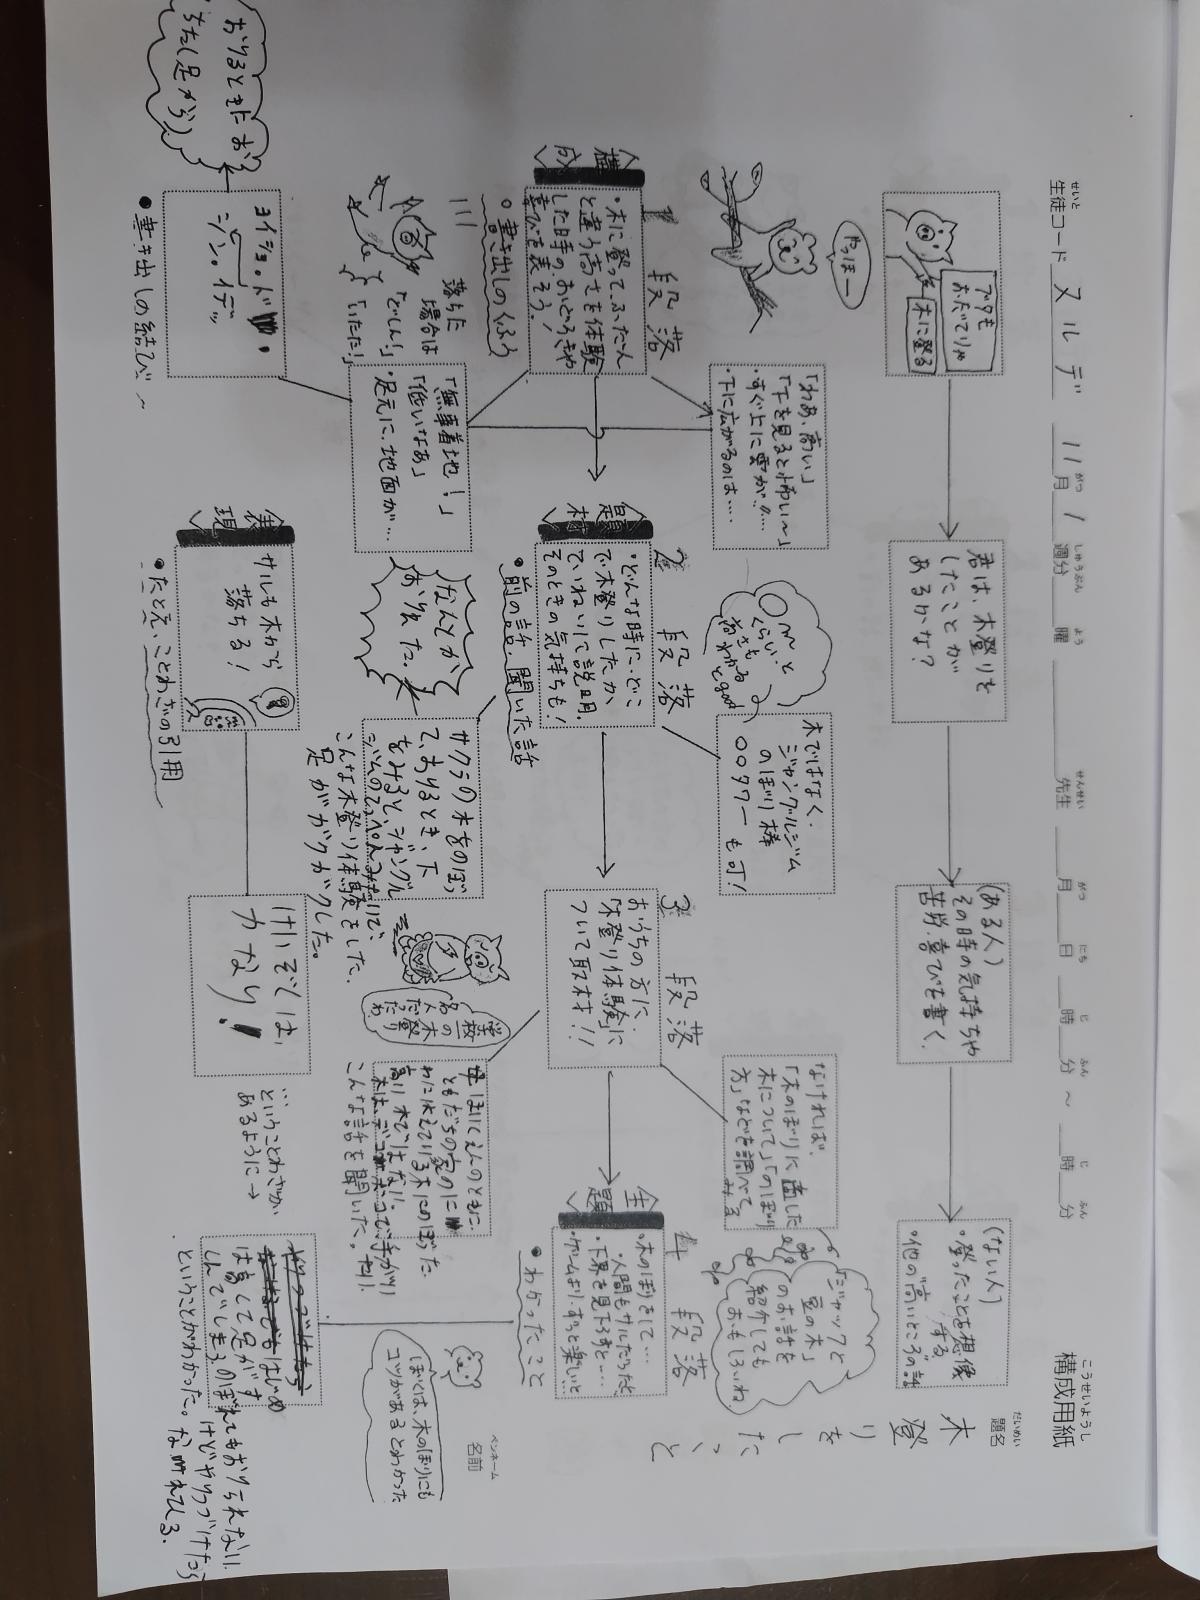 構成用紙
こうせいようし
題名
だいめい
木登りをしたこと
生徒コード ヌルデ 11月1週分 曜 先生 月 日 時 分 ~ 時 分
ペンネーム
名前
ブタも
おだてりゃ
木に登る
君は、木登りを
したことが
あるかな?
(ある人)
その時の気持ちや
苦労・喜びを書く。
(ない人)
・登ったことを想像
する
・他の高いところの話
やっほー
「わあ、高い」
「下を見ると怖い~」
・すぐ上に雲が…
・下に広がるのは…
〇〇m~と
くらい
高さも
わかる
とgood
木ではなく、
ジャングルジム
のぼり棒
〇〇タワーも可!
なければ、
「木のぼりに適した
木について」「のぼり
方」などを調べて
みる
「ジャックと
豆の木」
のお話を
紹介しても
おもしろいね
1段落
〈構成〉
・木に登って、ふだん
と違う高さを体験
した時の、おどろきや
喜びを表そう!
○書き出しのくふう
2段落
〈題材〉
・どんな時に、どこ
で木登りしたか
ていねいに説明。
そのときの気持ちも!
●前の話、聞いた話
3段落
おうちの方に、
「木登り体験」に
ついて取材!!
4段落
〈主題〉
・木のぼりをして…
・人間もサルだったと
・下界を見下ろすと…
・ゲームより、ずっと楽しいと
●わかったこと
落ちた
場合は
「どしん!」
「いたた!」
「無事着地!」
「低いなあ」
・足元に、地面が…
なんとか
おりれた。
サクラの木をのぼっ
て、おりるとき、下
をみると、ジャングル
ジムのてっぺんみたいで、
足がガクガクした。
こんな木登り体験をした。
学校の
木登り
名人
だった
わ
母 ほいくえんのともに、
ともだちの家のにわ
にはえている木にのぼった。
高い木ではない。
こんな話を聞いた。
ぼくは、木のぼりにも
コツがあるとわかった
おりるときにお
ちた(足から)
ヨイショ、ド
シン、イデッ
●書き出しの結び~
〈表現〉
サルも木から
落ちる!
●たとえ、ことわざの引用
けいぞくは、
力なり!
…ということわざが
あるように→
はじめ
は高くて足がす
くんでしまう。のぼれてもおりられない。
けどやりつづけたら
なれてくる、
ということがわかった。